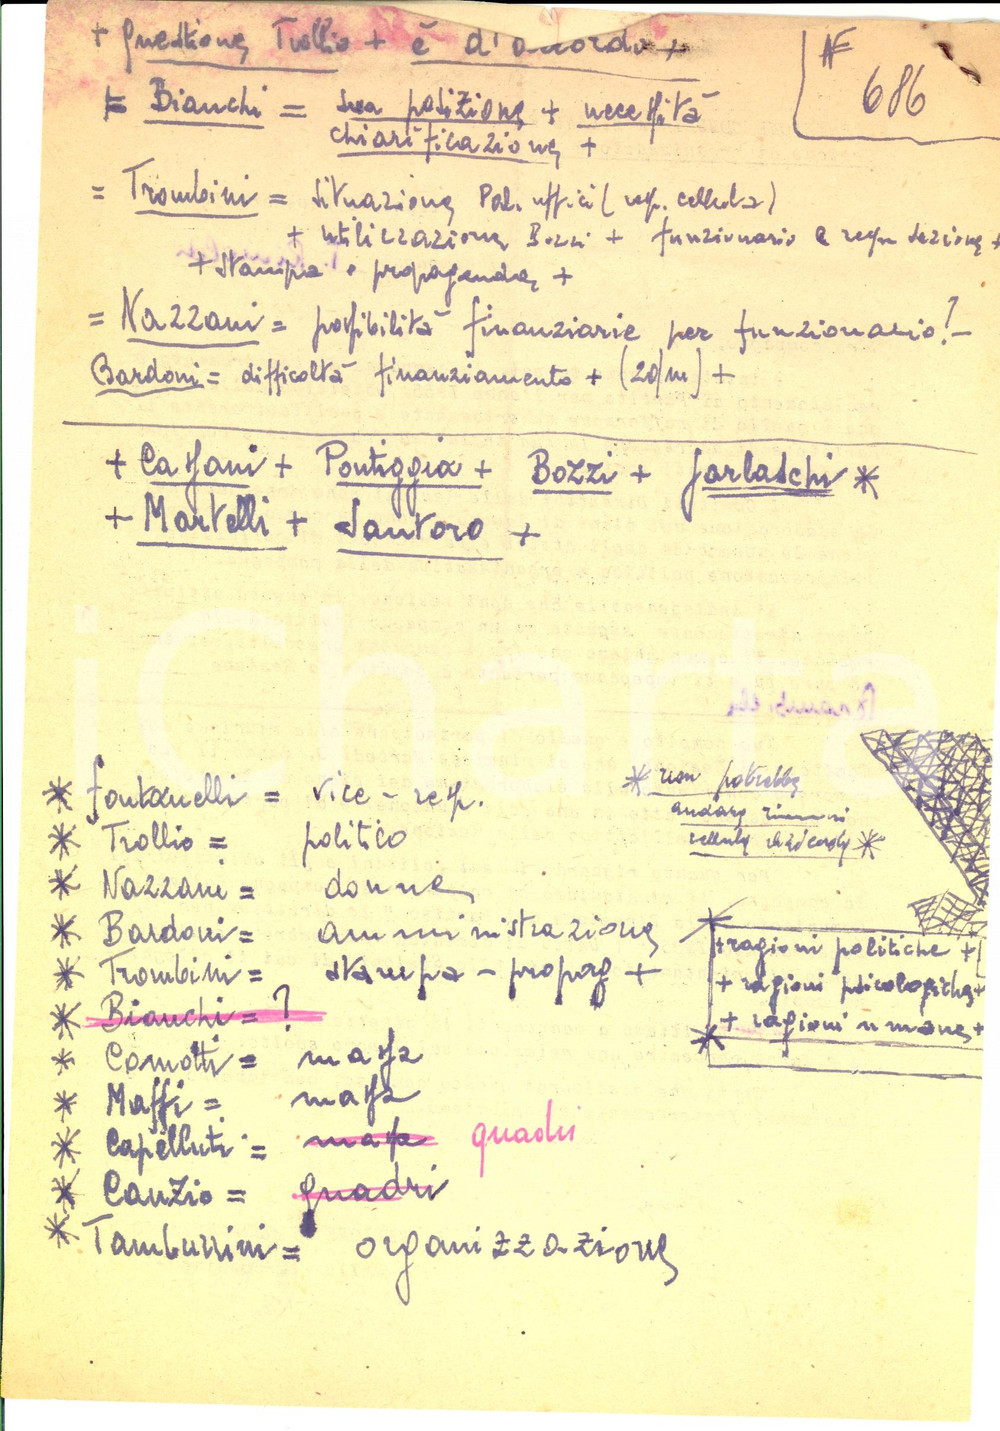 + questione Trollio + è d'accordo +
AF
686
= Bianchi = sua posizione + necessità
chiarificazione +
= Trombini = situazione Pal. uffici (resp. cellula)
+ utilizzazione Bozzi + funzionario e segr sezione +
+ stampa e propaganda +
= Nazzani = possibilità finanziarie per funzionario? -
Bardoni = difficoltà finanziamento + (20/m) +
+ Cassani + Pontiggia + Bozzi + Garlaschi *
+ Martelli + Santoro +
* Fontanelli = vice - resp.
* Trollio = politico
* Nazzani = donne
* Bardoni = amministrazione
* Trombini = stampa - propag +
* Bianchi = ?
* Comotti = massa
* Maffi = massa
* Capelluti = massa quadri
* Canzio = quadri
* Tamburrini = organizzazione
* non potrebbe
andare
cellula *
+ ragioni politiche +
+ ragioni psicologiche +
+ ragioni umane +
iCharta